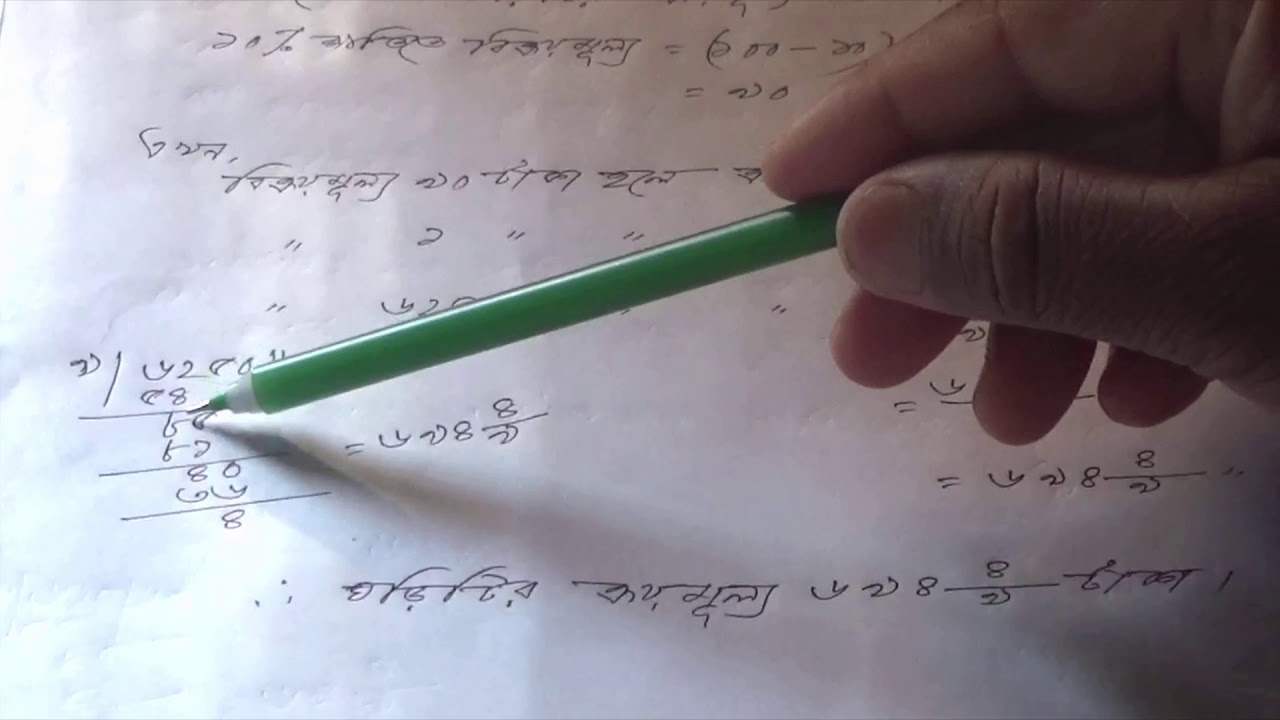 ১০% ক্ষতিতে বিক্রয়মূল্য = (১০০ - ১০)
= ৯০
এখন,
বিক্রয়মূল্য ৯০ টাকা হলে
" ১ " "
" ৬২৫ " "
৯ | ৬২৫০
৫৪
৮৫
৮১
৪০
৩৬
৪
= ৬৯৪ ৪/৯
= ৬৯৪ ৪/৯ "
∴ ঘড়িটির ক্রয়মূল্য ৬৯৪ ৪/৯ টাকা।